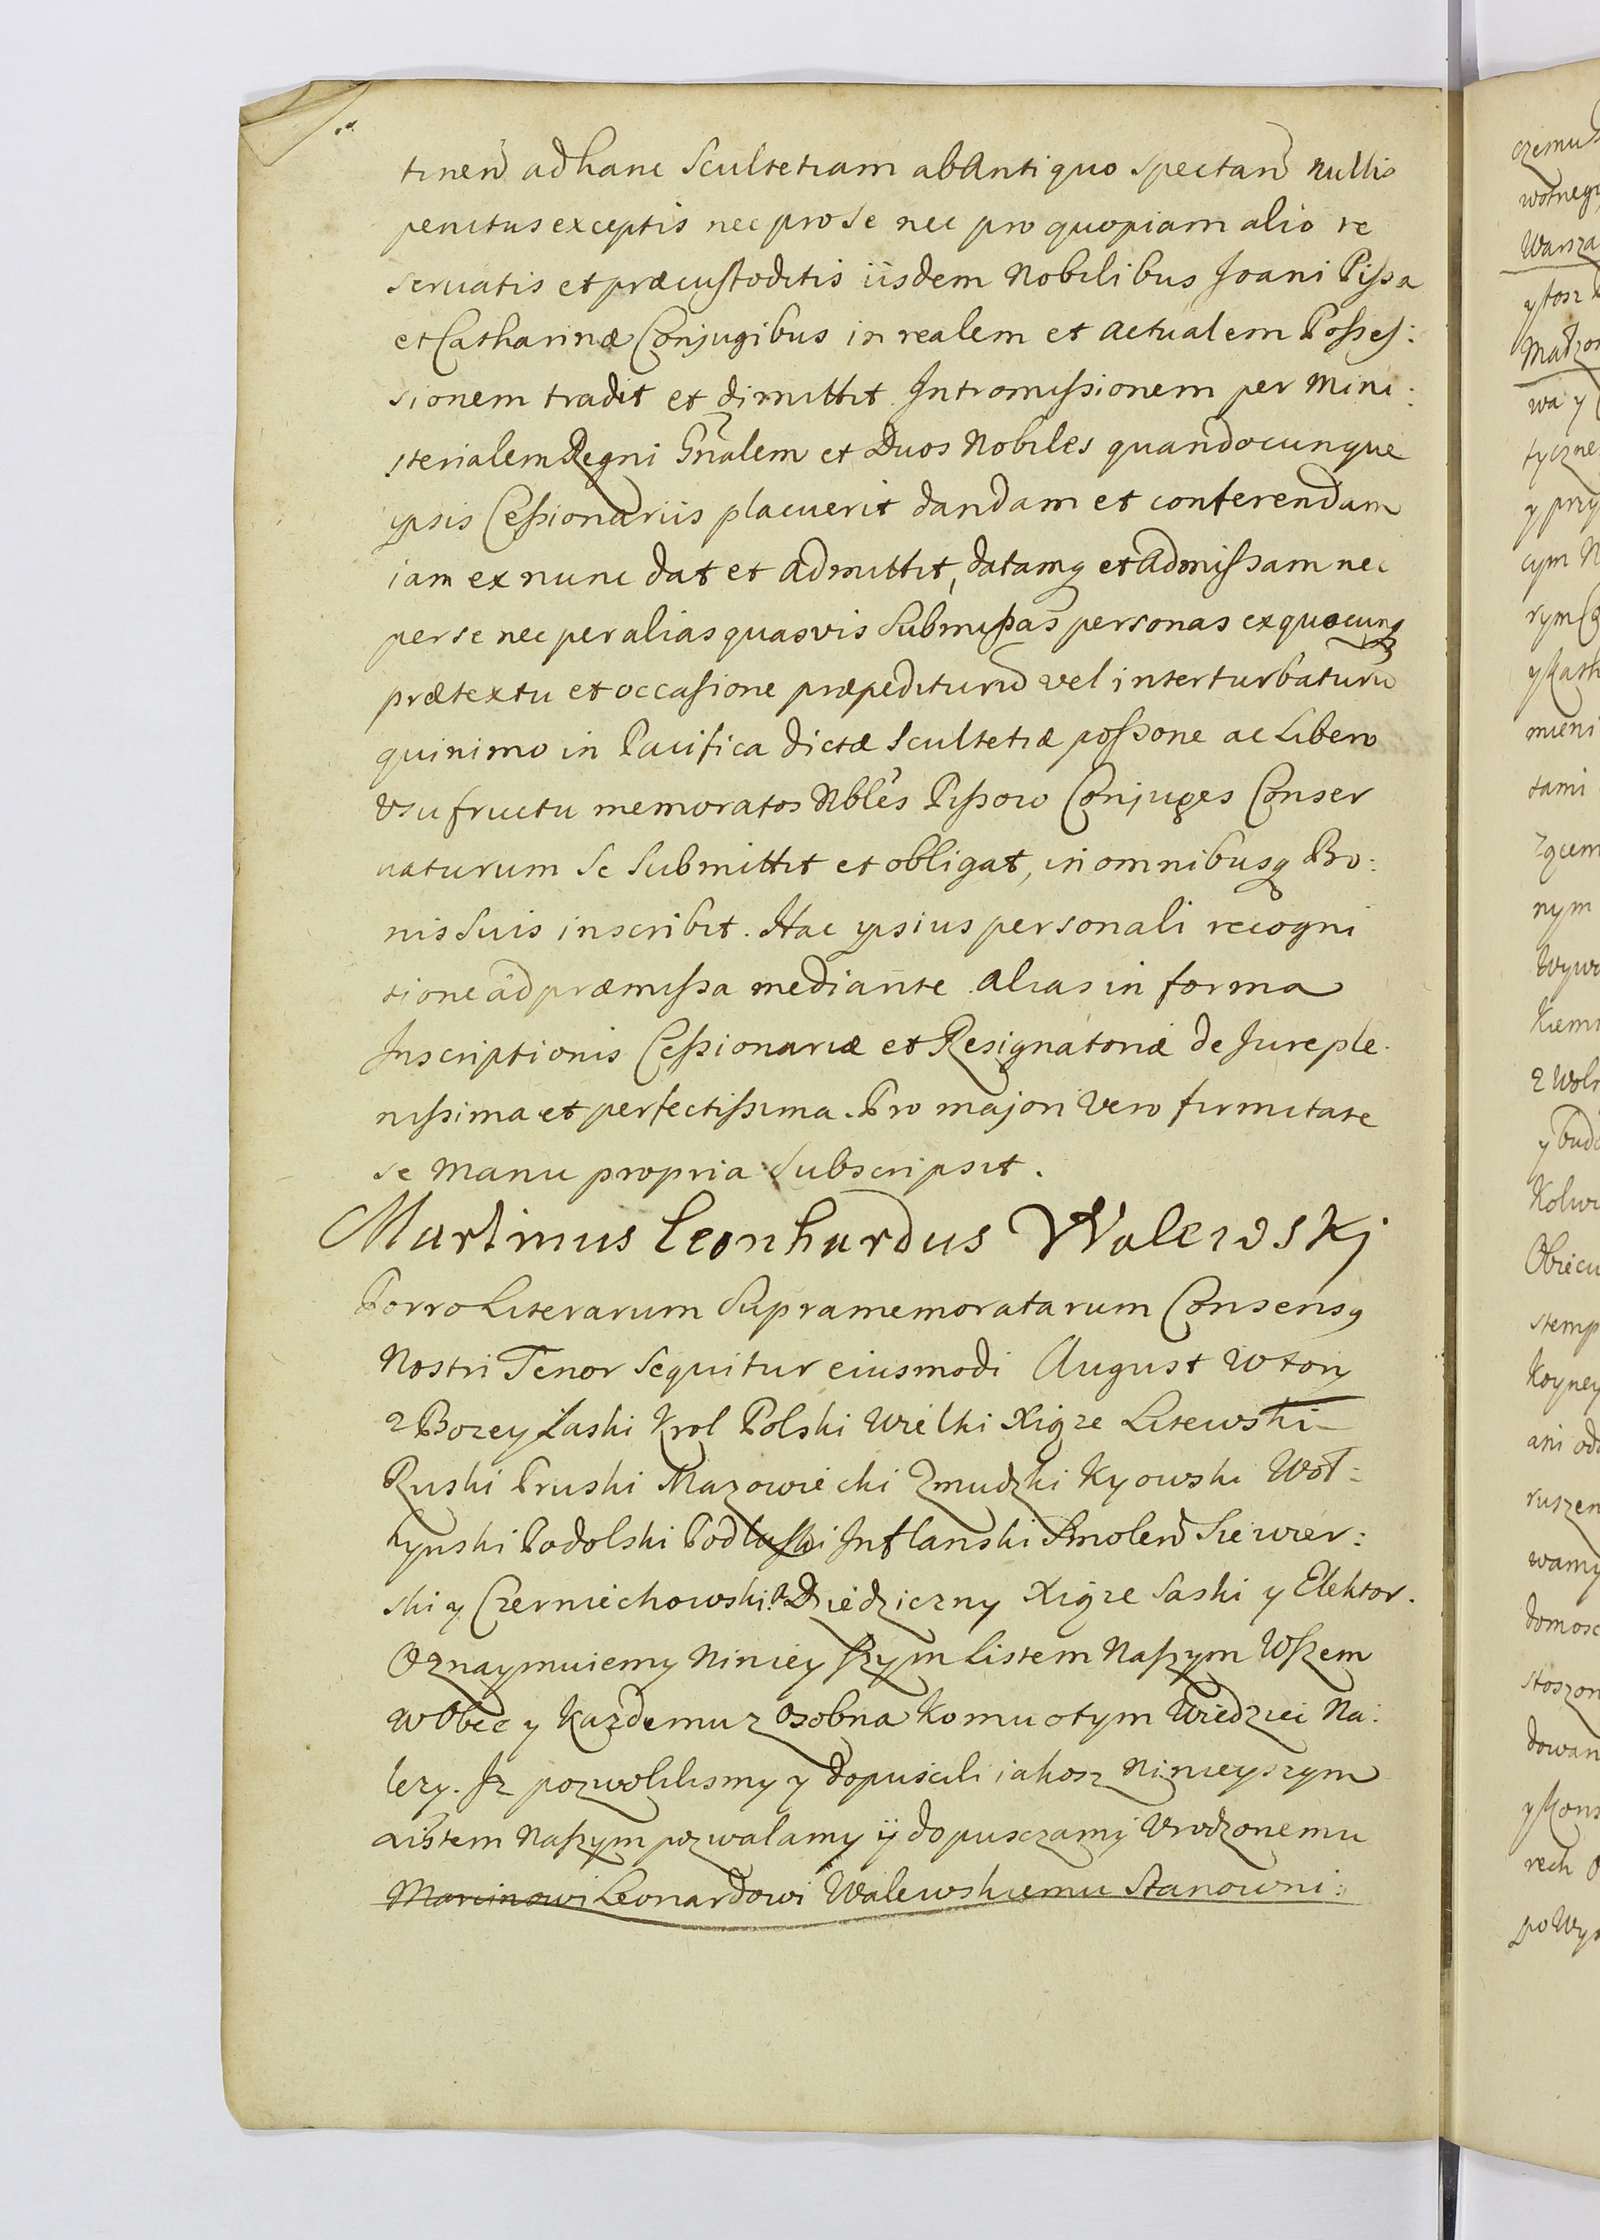 tinen̄ ad hanc Scultetiam ab Antiquo Spectan̄ nullis
penitus exceptis nec pro se nec pro quopiam alio re
seruatis et præcustoditis iisdem Nobilibus Joani Pissa
et Catharinæ Conjugibus in realem et actualem Posses:
sionem tradit et dimittit Intromissionem per Mini:
sterialem Regni Gn̄alem et Duos Nobiles quandocunque
ipsis Cessionariis placuerit dandam et conferendam
iam ex nunc dat et admittit, datamq et admissam nec
per se nec per alias quasvis Submissas personas ex quocunq
prætextu et occasione præpediturū vel interturbaturū
quinimo in Pacifica dictæ Scultetiæ possone ac Libero
Vsufructu memoratos Nblēs Pissow Conjuges Conser
vaturum Se Submittit et obligat, in omnibusq Bo:
nis Suis inscribit. Hac ipsius personali recogni
tione ad præmissa mediante alias in forma
Inscriptionis Cessionariæ et Resignatoriæ de Jure ple:
nissima et perfectissima. Pro majori Vero firmitate
se Manu propria Subscripsit.
Martinus Leonhardus Walewskj
Porro Literarum Supramemoratarum Consensq
Nostri Tenor Sequitur eiusmodi August Wtory
z Bozey Łaski Krol Polski Wielki Xiąze Litewski
Ruski Pruski Mazowiecki Zmudzki Kyowski Woł:
hynski Podolski Podlaski Inflanski Smolen̄ Siewier:
ski y Czerniechowski Dziedziczny Xiąze Saski y Elektor.
Oznaymuiemy Ninieyszym Listem Naszym Wszem
W Obec y Kazdemu z Osobna Komu o tym Wiedziec Na:
lezy. Jz pozwolilismy y dopuscili iakosz Ninieyszym
Listem Naszym pozwalamy ÿ dopusczamy Vrodzonemu
Marcinowi Leonardowi Walewskiemu Stanowni:
czemu
wolneg
Warsza
Małzon
wa y
tyczne
y przy
cym N
mieni
tami
nym
Wywo
Obiecu
stemp
ruszen
wamy
domosc
dowan
rech